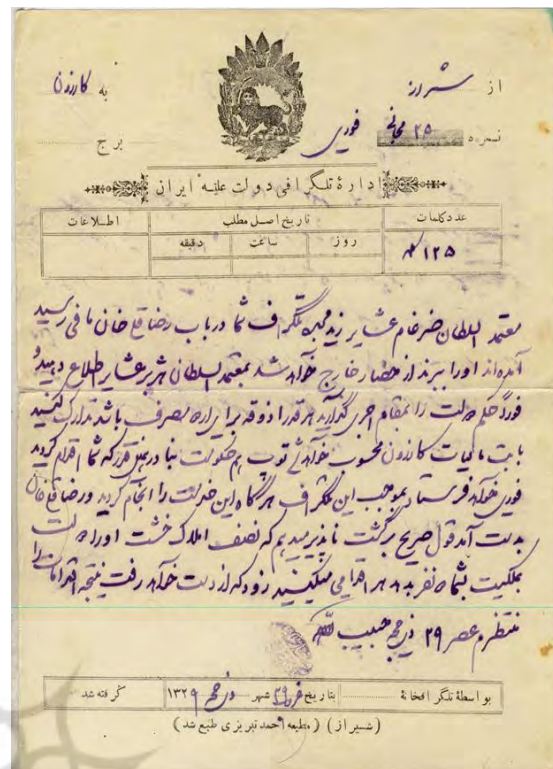 از شیراز به کازرون
نمره ۲۵ مجانی فوری برج
ادارهٔ تلگرافی دولت علیّهٔ ایران
عدد کلمات تاریخ اصل مطلب اطلاعات
روز ساعت دقیقه
۱۲۵
معتمد السلطان ضرغام عشایر زید مجده تلگراف شما در باب رضا قلی خان مافی رسید
آمده‌اند او را ببرند از حضار خارج خواهد شد بمعتمد السلطان هژبر عشایر اطلاع دهید و
فوراً حکم دولت را بمقام اجرا گذارید هر قدر آذوقه برای مصرف باشد تدارک کنید
بابت مالیات کازرون محسوب خواهد شد توپ هم حکومت
فوری خواهد فرستاد بموجب این تلگراف هرگاه این خدمت را انجام کردید و رضا قلی خان
بدست آمد قول صریح برگشت ناپذیر میدهم که نصف املاک خشت او را دولت
بملکیت بشما نفر بدهد هر اقدامی میکنید زود که از دست خواهد رفت نتیجه اقدامات را
منتظرم عصر ۲۹ ذیحجه حبیب الله
بواسطهٔ تلگرافخانهٔ بتاریخ ۲۹ شهر ذیحجه ۱۳۲۹ گرفته شد
(شیراز) (مطبعه احمد تبریزی طبع شد)